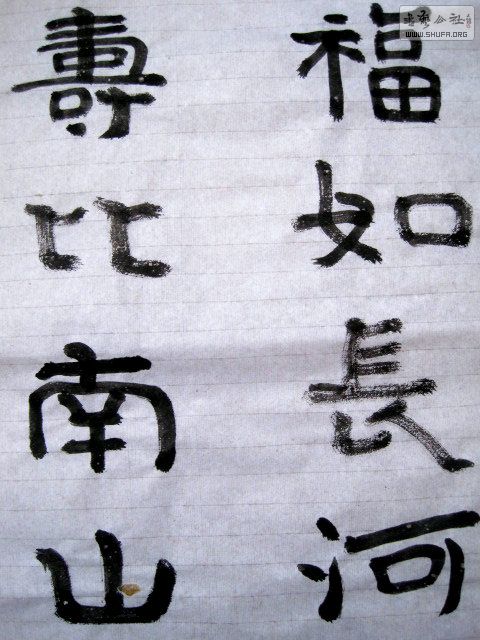 福如長河
壽比南山
书艺公社
WWW.SHUFA.ORG